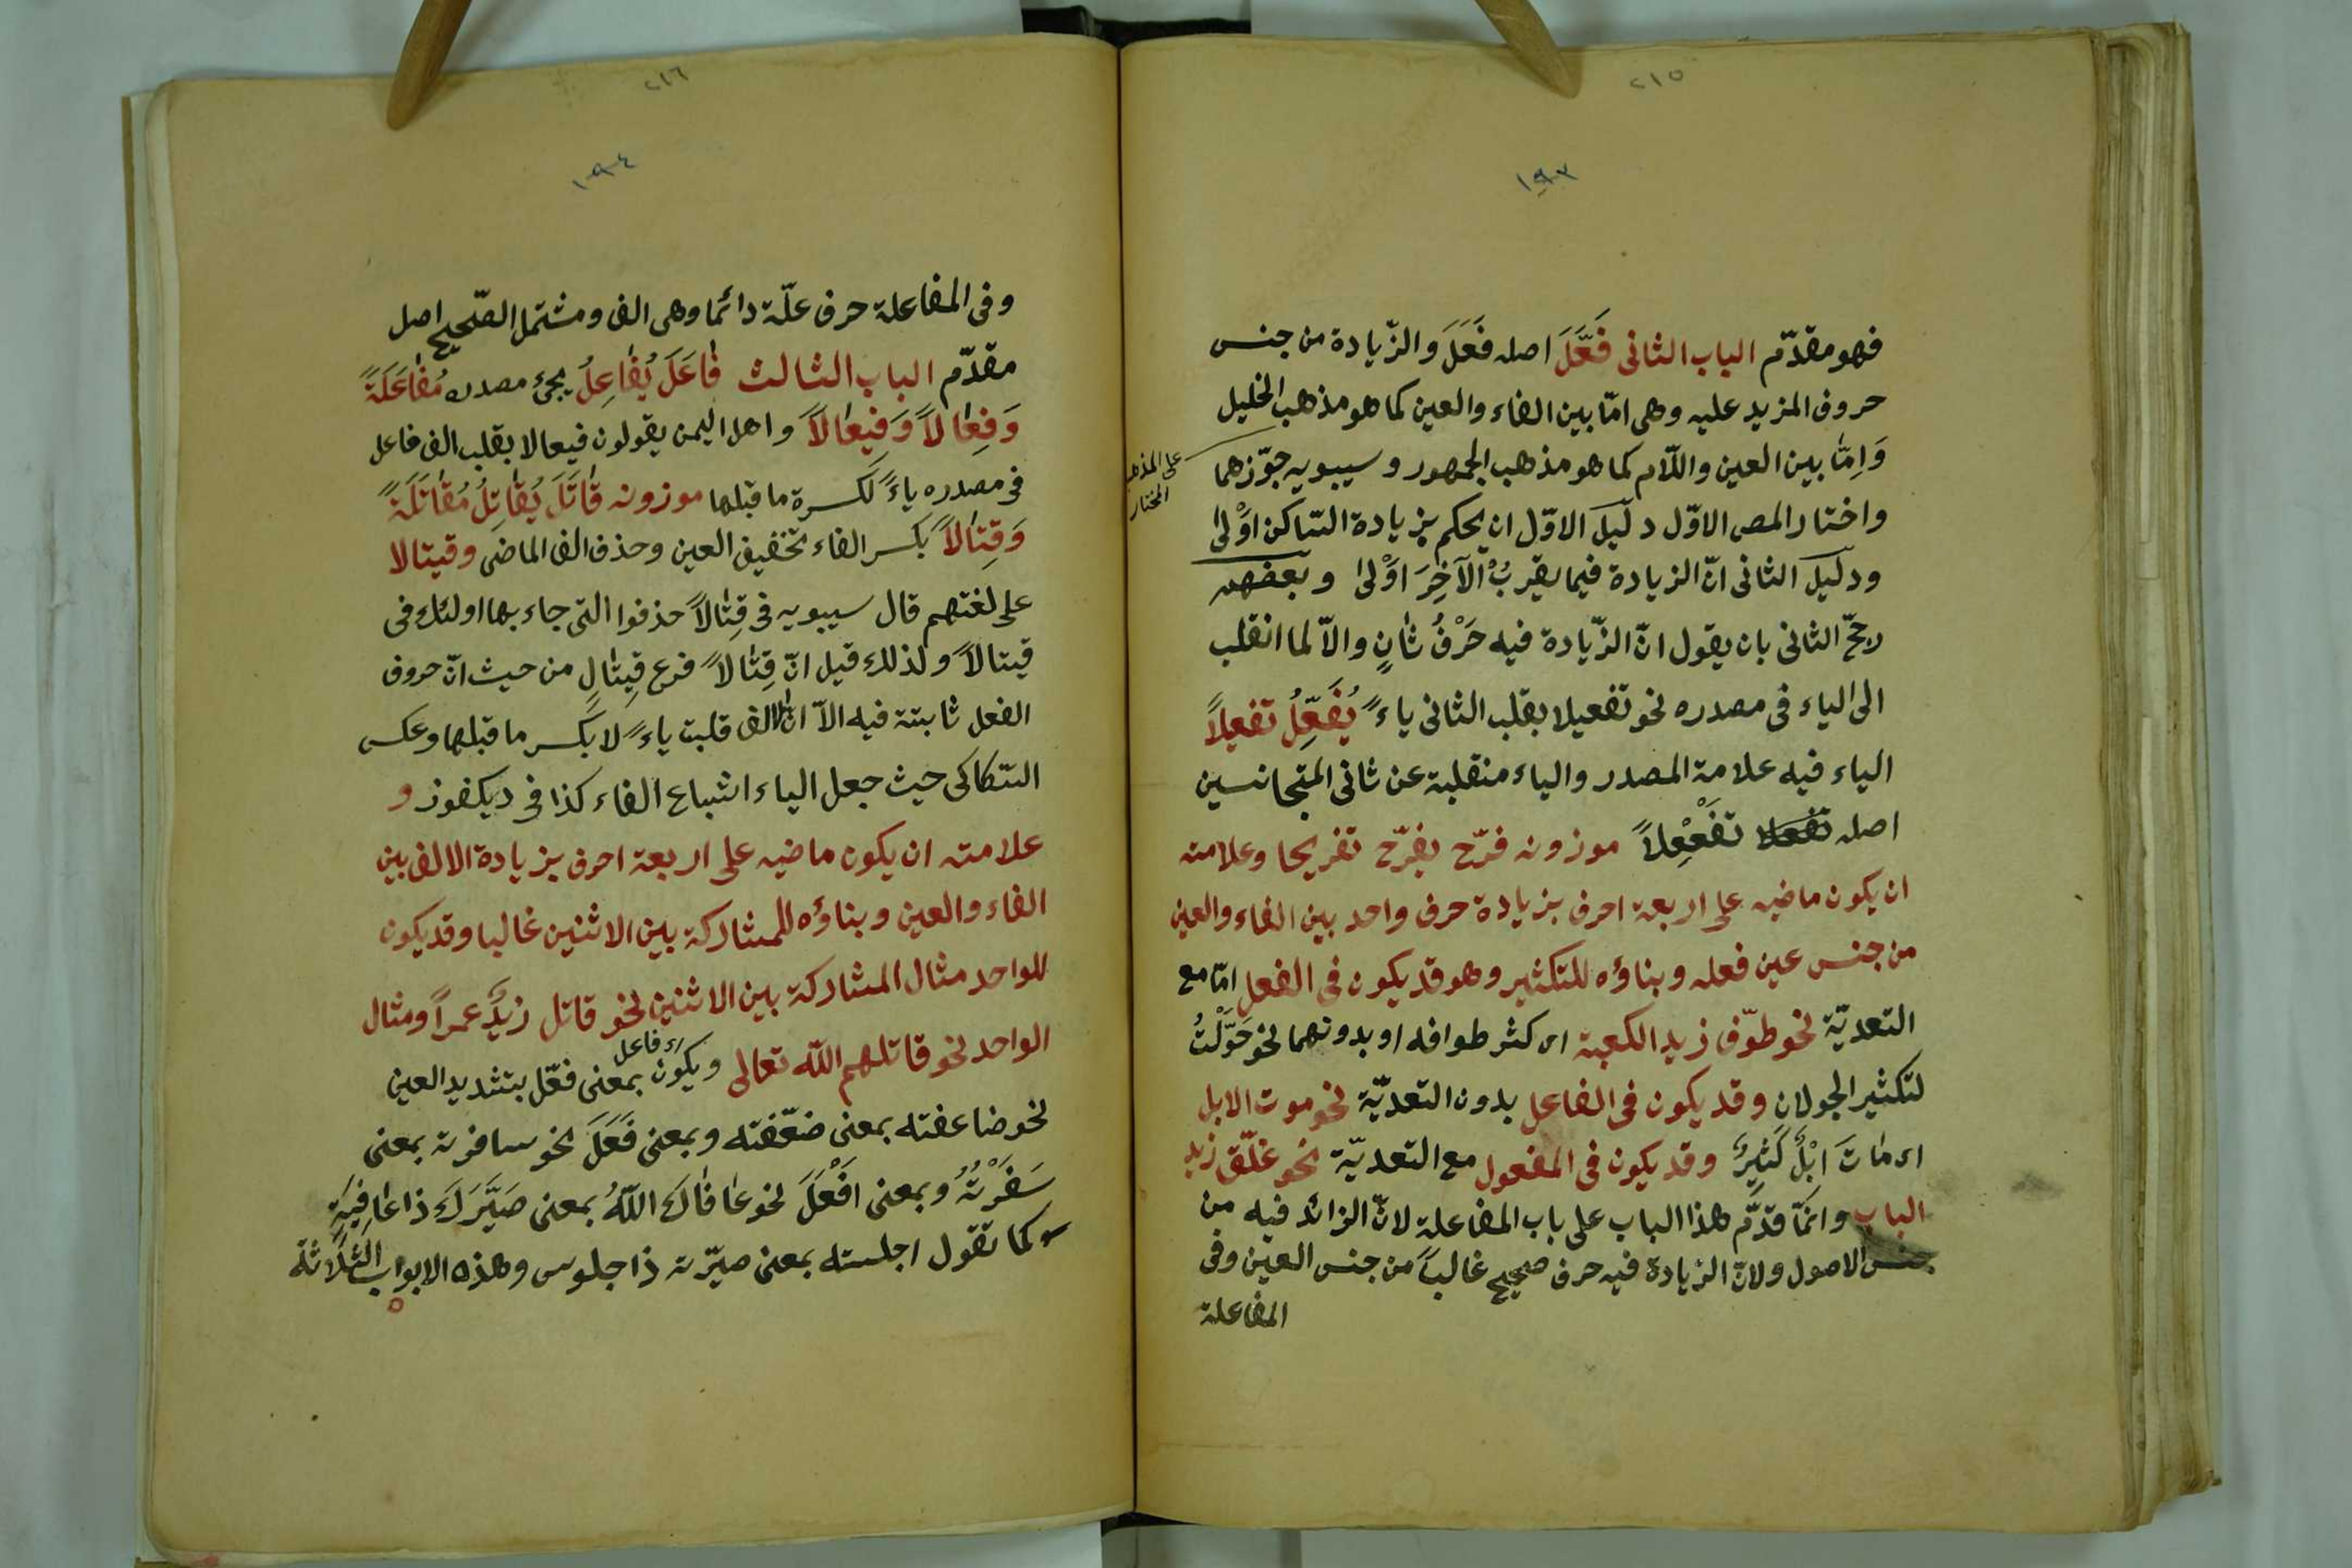 ٢١٥
١٩٣
فهو مقدّم الباب الثانى فَعَّلَ اصله فَعَلَ والزّيادة من جنس
حروف المزيد عليه وهى امّا بين الفاء والعين كما هو مذهب الخليل
وَاِمّا بين العين واللّام كما هو مذهب الجمهور و سيبويه جوّزهما
على المذهب
المختار
واختار المص الاوّل دليل الاوّل ان يحكم بزيادة السّاكن اَوْلىٰ
ودليل الثانى انّ الزيادة فيما يقربُ الآخِرَ اَوْلىٰ و بعضهم
رجّح الثانى بان يقول انّ الزّيادة فيه حَرْفُ ثانٍ والاّ لما انقلب
الى الياء فى مصدره نحو تفعيلا بقلب الثانى ياءً يُفَعِّلُ تفعيلاً
الياء فيه علامة المصدر والياء منقلبة عن ثانى المتجانسين
اصله تفعلا تفَعْعِلاً موزونه فرّح يفرّح تفريحا وعلامته
ان يكون ماضيه على اربعة احرف بزيادة حرف واحد بين الفاء والعين
من جنس عين فعله وبناؤه للتكثير وهو قد يكون فى الفعل امّا مع
التعديّة نحو طوّف زيد الكعبة اى كثر طوافه او بدونهما نحو حَوَّلْتُ
لتكثير الجولان وقد يكون فى الفاعل بدون التعديّة نحو موت الابل
اى مٰاتَ اِبْلٌ كَثِيرٌ وقد يكون فى المفعول مع التعديّة نحو غلّق زيد
الباب وانمّا قدّم هذا الباب على باب المفاعلة لانّ الزائد فيه من
جنس الاصول ولانّ الزيادة فيه حرف صحيح غالباً من جنس العين وفى
المفاعلة
٢١٦
١٩٤
وفى المفاعلة حرف علّة دائما وهى الف ومشتمل الصّحيح اصل
مقدّم الباب الثالث فٰاعَلَ يُفٰاعِلُ يجئ مصدره مُفٰاعَلَةً
وَفِعٰالاً وَفِيعٰالاً واهل اليمن يقولون فيعالا بقلب الف فاعل
فى مصدره ياءً لكسرة ما قبلها موزونه قٰاتَلَ يُقٰاتِلُ مُقٰاتَلَةً
وَقِتٰالاً بكسر الفاء تخفيف العين وحذف الف الماضى وقيتالا
على لغتهم قال سيبويه فى قِتٰالاً حذفوا التى جاء بها اولئك فى
قيتالاً ولذلك قيل انّ قِتٰالاً فرع قِيتٰالٍ من حيث انّ حروف
الفعل ثابتة فيه الاّ انّ الالف قلبت ياءً لا بكسر ما قبلها وعكس
السّكاكى حيث جعل الياء اشباع الفاء كذا فى ديكفوز و
علامته ان يكون ماضيه على اربعة احرف بزيادة الالف بين
الفاء والعين وبناؤه للمشاركة بين الاثنين غالبا وقد يكون
للواحد مثال المشاركة بين الاثنين نحو قاتل زيدٌ عمراً ومثال
الواحد نحو قاتلهم اللّه تعالى ويكون بمعنى فعّل بتشديد العين
اى فاعل
نحو ضاعفته بمعنى ضعّفته وبمعنى فَعَلَ نحو سافرت بمعنى
سَفَرْتُ وبمعنى اَفْعَلَ نحو عٰافٰاكَ اللّٰهُ بمعنى صَيَّرَكَ ذا عٰافِيَةٍ
كما تقول اجلسته بمعنى صيّرته ذا جلوس وهذه الابواب الثلاثة